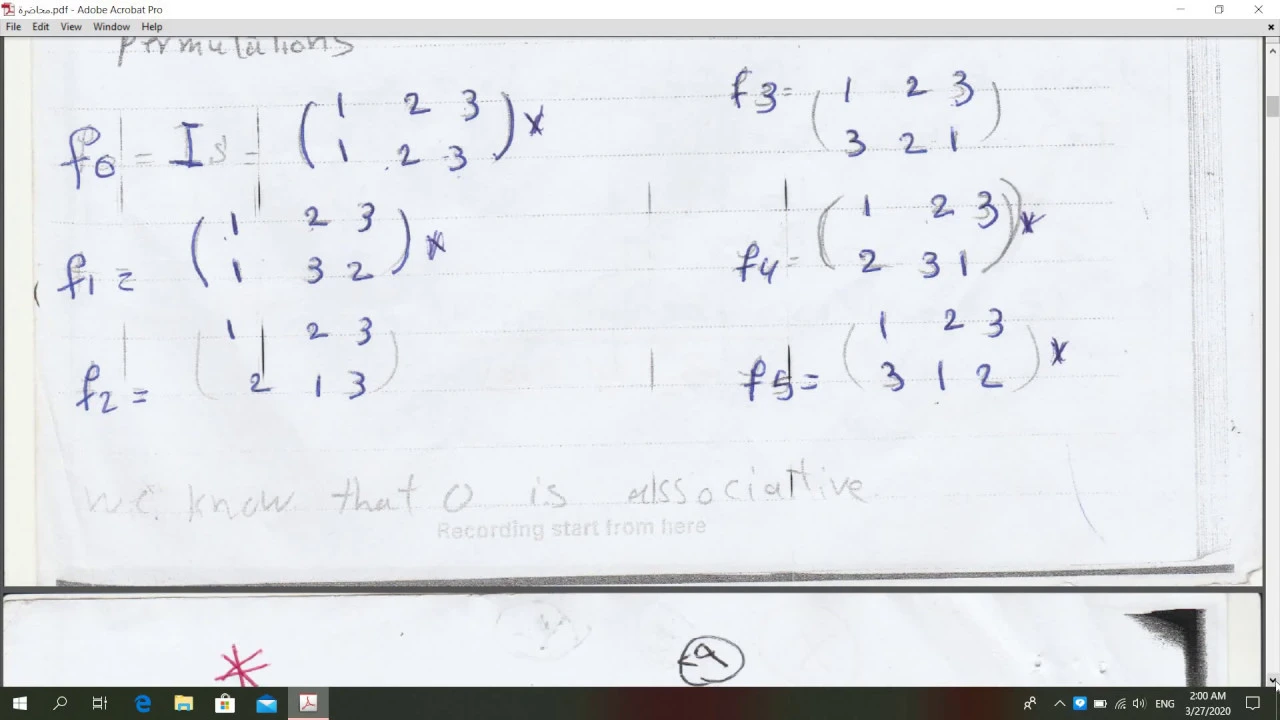 محاضرة.pdf - Adobe Acrobat Pro
File Edit View Window Help
permutations
f0 = Is = ( 1 2 3 ) *
( 1 2 3 )
f1 = ( 1 2 3 ) *
( 1 3 2 )
f2 = ( 1 2 3 )
( 2 1 3 )
f3 = ( 1 2 3 )
( 3 2 1 )
f4 = ( 1 2 3 ) *
( 2 3 1 )
f5 = ( 1 2 3 ) *
( 3 1 2 )
we know that o is associative
Recording start from here
ENG
2:00 AM
3/27/2020